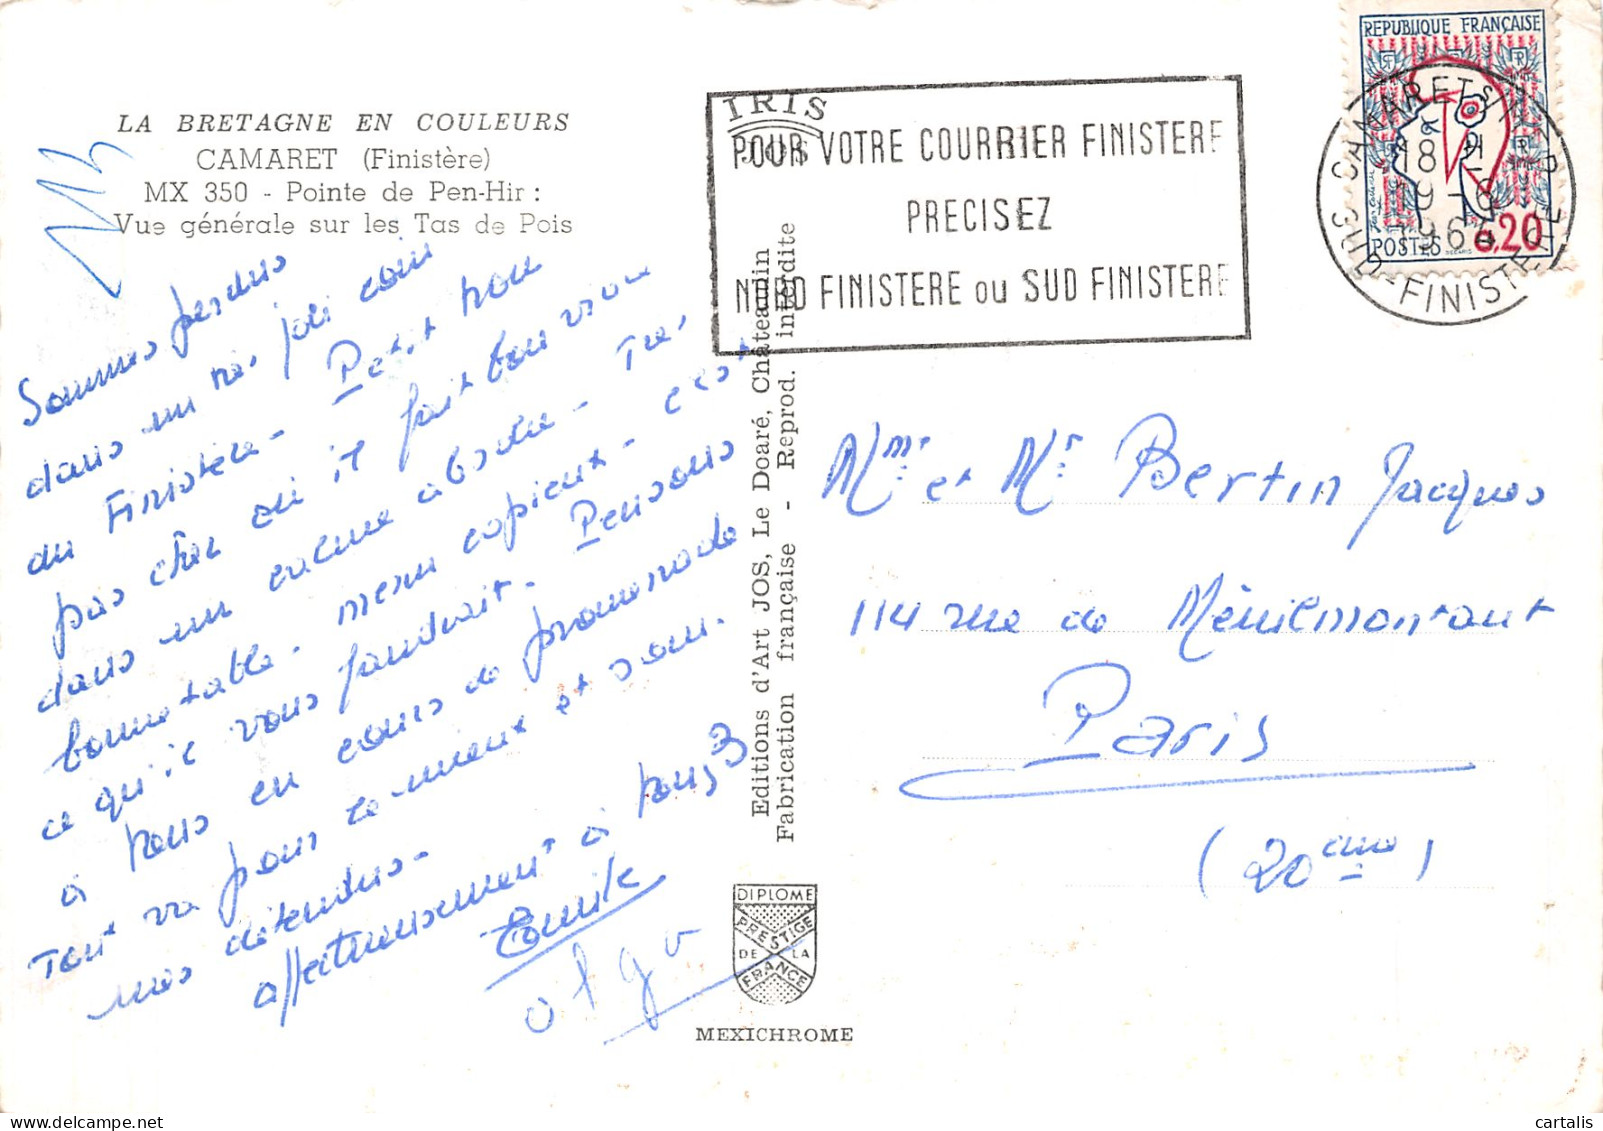 LA BRETAGNE EN COULEURS
CAMARET (Finistère)
MX 350 - Pointe de Pen-Hir :
Vue générale sur les Tas de Pois
Sommes perdus
dans un joli coin
du Finistère - Petit trou
pas cher où il fait bon vivre
dans un calme absolu - Très
bonne table - menu copieux - c'est
ce qu'il vous faudrait. Pensons
à vous en cours de promenade
Tout va pour le mieux et som.
mes détendus -
affectueusement à vous 3
Emile
olga
Editions d'Art JOS, Le Doaré, Chateaulin
Fabrication française - Reprod. interdite
DIPLOME
PRESTIGE
DE LA
FRANCE
MEXICHROME
IRIS
JOS
POUR VOTRE COURRIER FINISTERE
PRECISEZ
NORD FINISTERE OU SUD FINISTERE
REPUBLIQUE FRANÇAISE
POSTES
0,20
CAMARET S/ MER
18 H
19 - 6
1964
SUD-FINISTERE
Mme et Mr Bertin Jacques
114 rue de Ménilmontant
Paris
(20ème)
cartalis